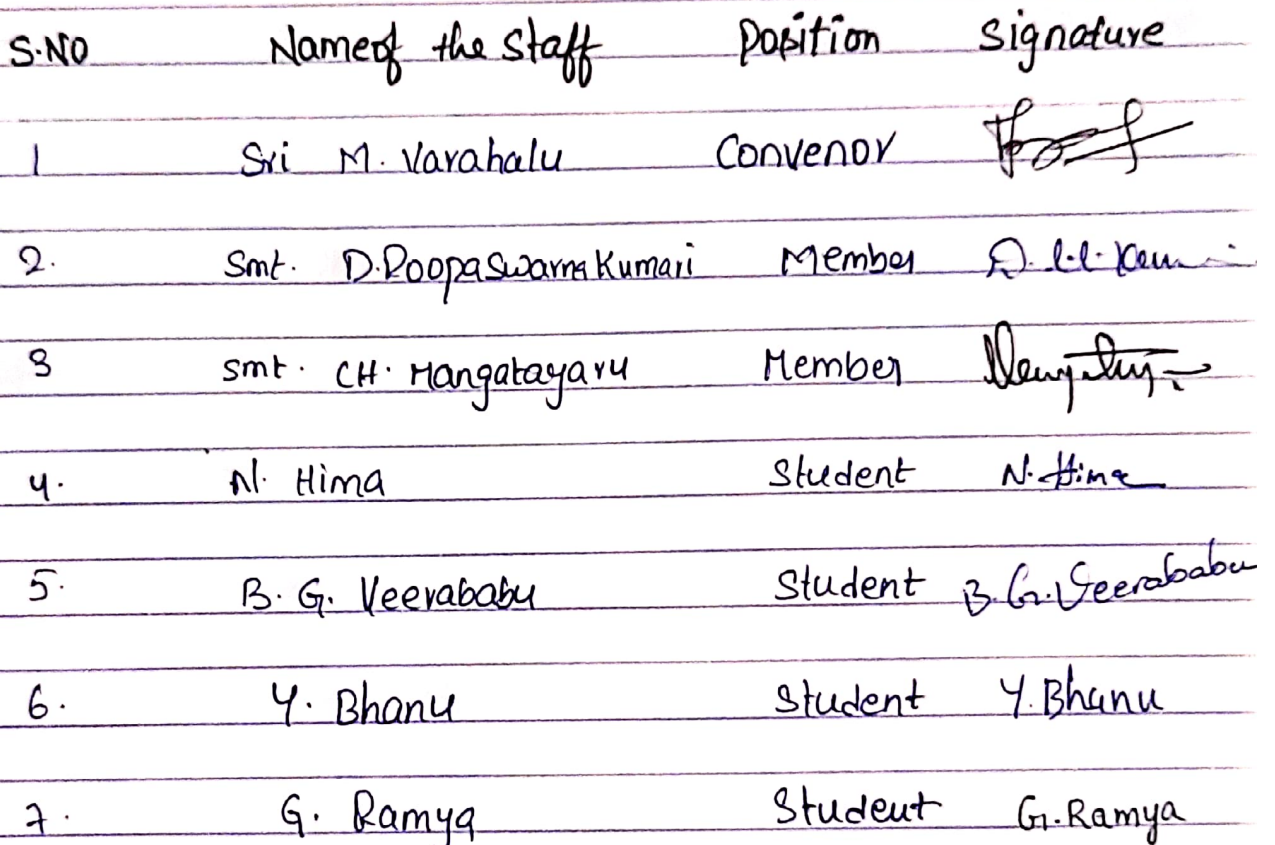 S.NO Name of the Staff Position Signature
1 Sri M. Varahalu Convenor
2. Smt. D.Roopa Swarna Kumari Member
3 Smt. CH. Mangatayaru Member
4. N. Hima Student N. Hima
5. B. G. Veerababu Student B. G. Veerababu
6. Y. Bhanu Student Y. Bhanu
7. G. Ramya Student G. Ramya